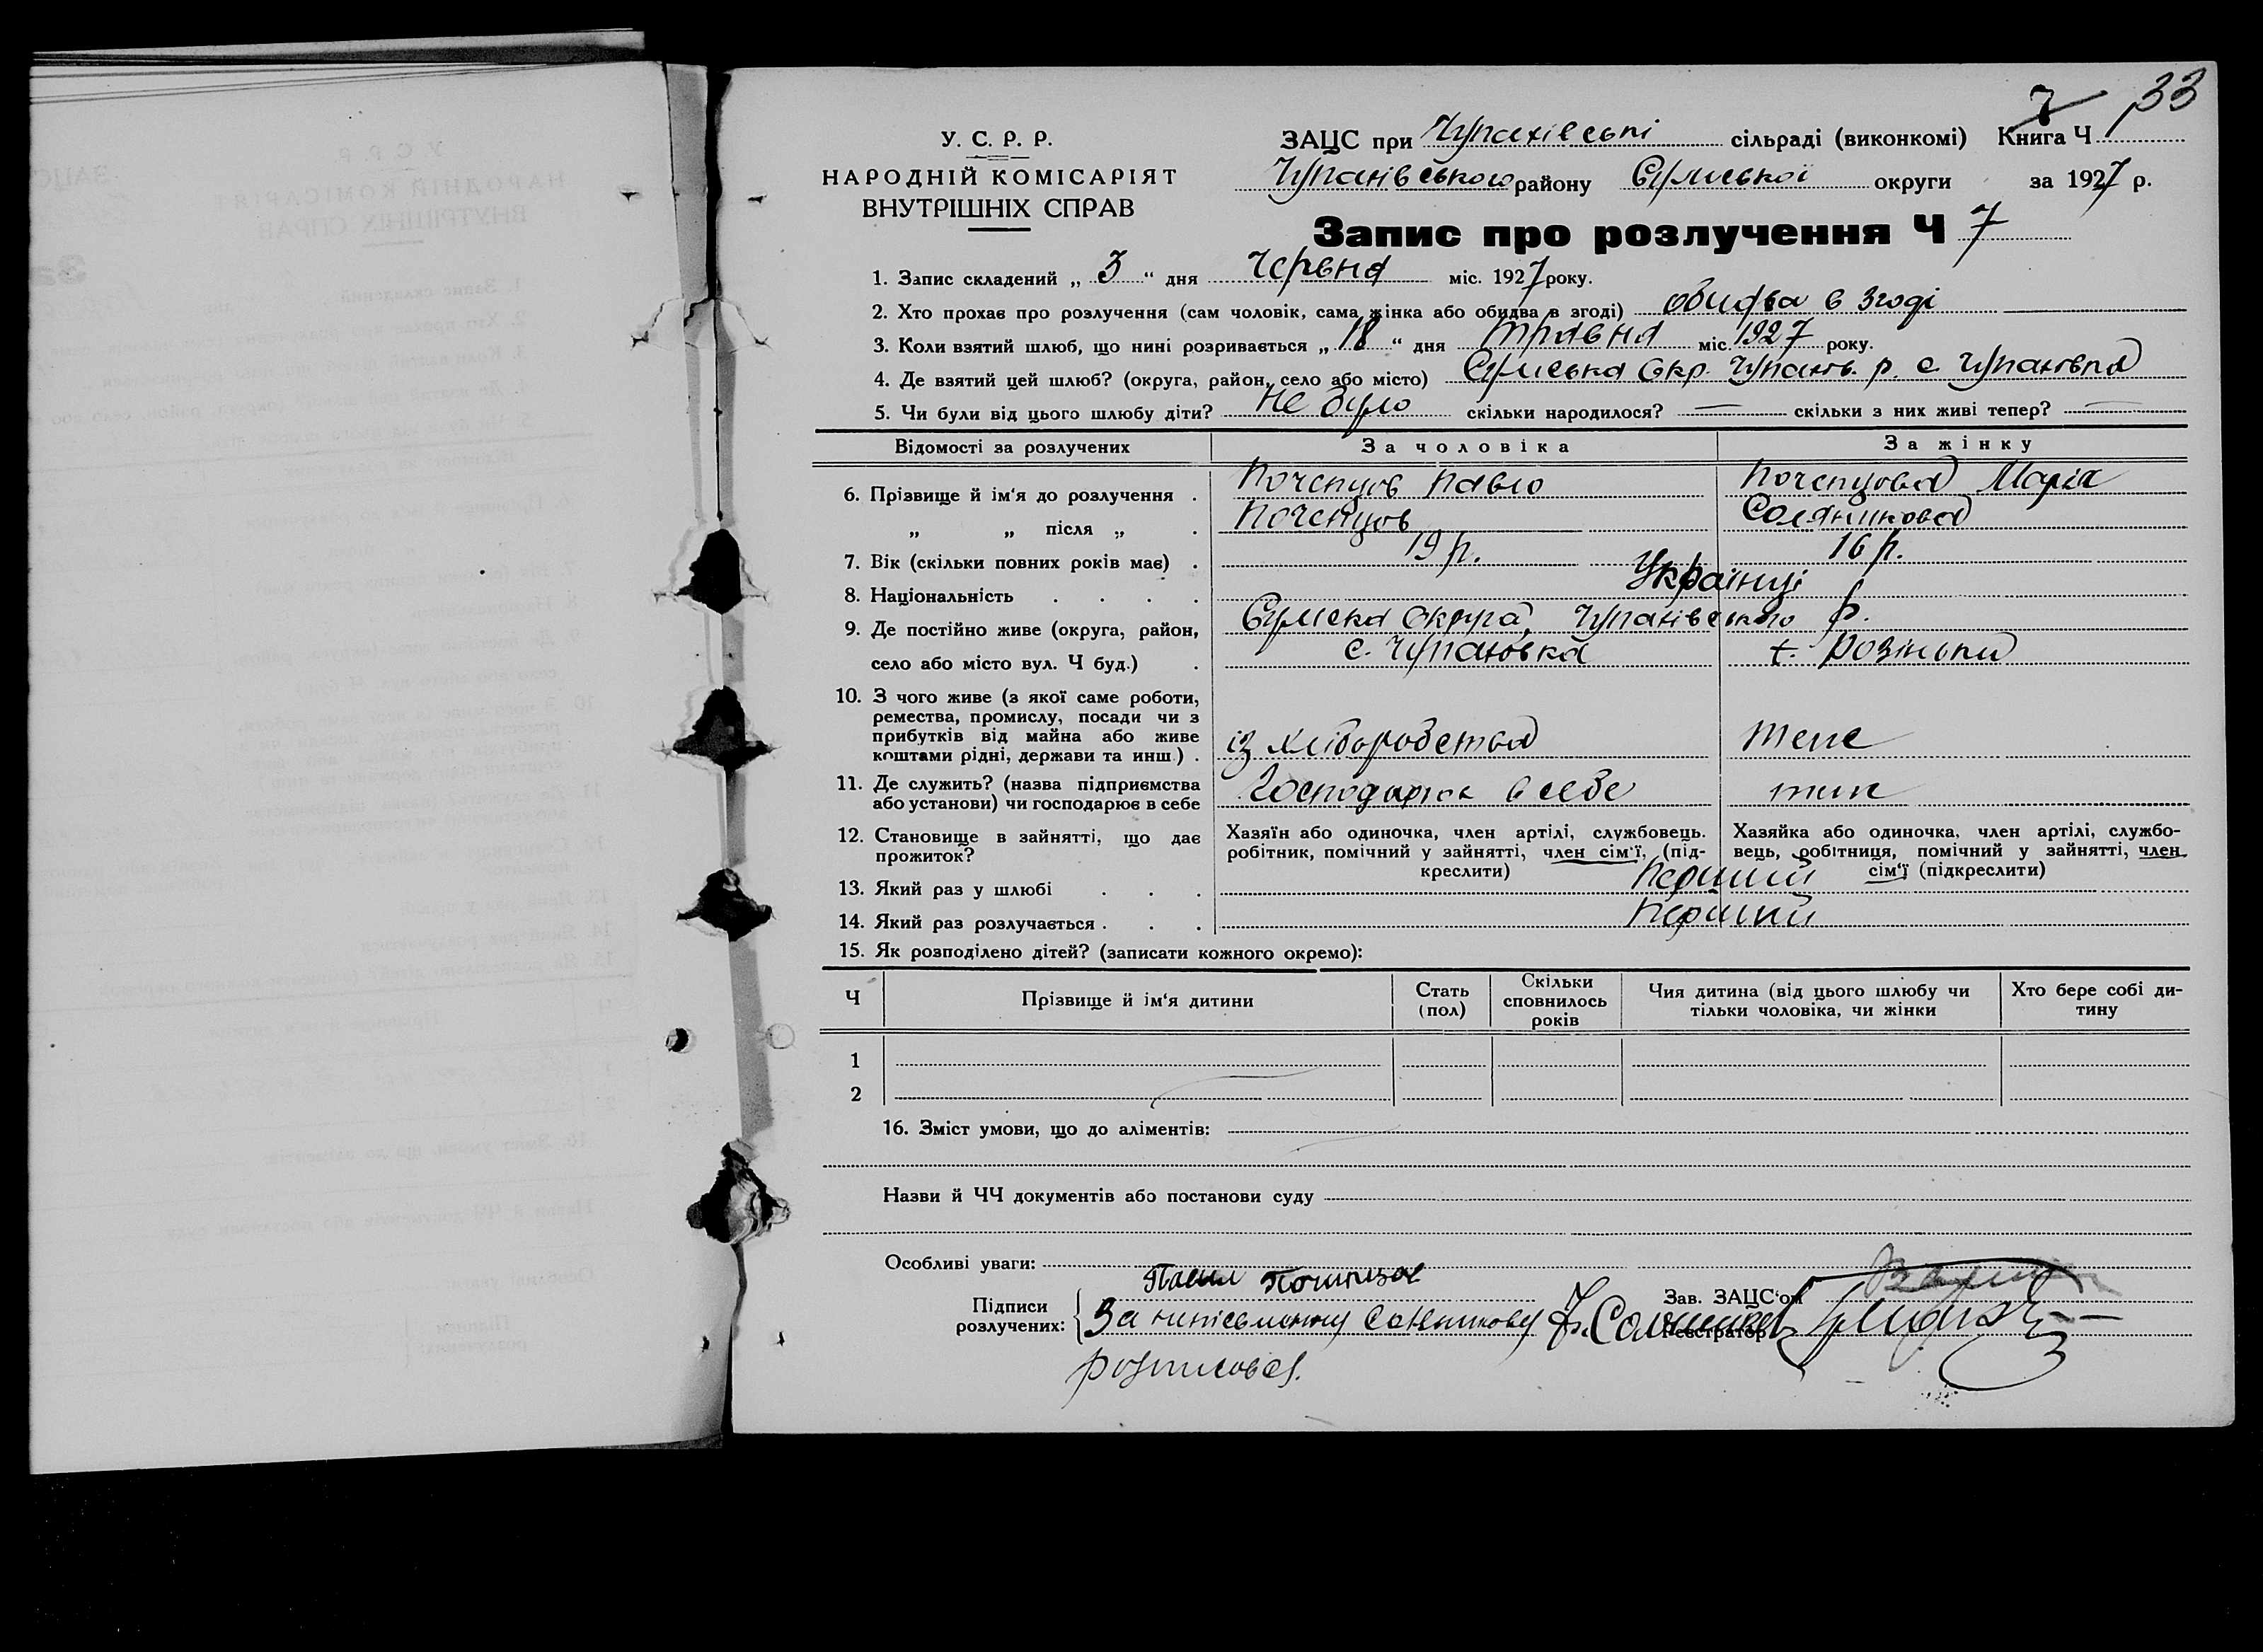 33
7
У. С. Р. Р.
НАРОДНІЙ КОМІСАРІЯТ
ВНУТРІШНІХ СПРАВ
ЗАЦС при Чупахівські сільраді (виконкомі) Книга Ч
Чупахівського району Сумської округи за 1927 р.
Запис про розлучення Ч 7
1. Запис складений „ 3 “ дня червня міс. 1927 року.
2. Хто прохає про розлучення (сам чоловік, сама жінка або обидва в згоді) обидва в згоді
3. Коли взятий шлюб, що нині розривається „ 18 “ дня травня міс. 1927 року.
4. Де взятий цей шлюб? (округа, район, село або місто) Сумська Окр. Чупахів. р. с. Чупахівка
5. Чи були від цього шлюбу діти? не було скільки народилося? — скільки з них живі тепер? —
Відомості за розлучених За чоловіка За жінку
6. Прізвище й ім‘я до розлучення . Почепцов Павло Почепцова Марія
„ „ після „ . Почепцов Соляникова
7. Вік (скільки повних років має) . 19 р. 16 р.
8. Національність . . . . Українці
9. Де постійно живе (округа, район, Сумська округа, Чупахівського р.
село або місто вул. Ч буд.) . с. Чупахівка
10. З чого живе (з якої саме роботи,
ремества, промислу, посади чи з
прибутків від майна або живе
коштами рідні, держави та инш.) . із хліборобства теж
11. Де служить? (назва підприємства
або установи) чи господарює в себе Господарює в себе теж
12. Становище в зайнятті, що дає
прожиток?
Хазяїн або одиночка, член артілі, службовець.
робітник, помічний у зайнятті, член сім‘ї, (під-
креслити)
Хазяйка або одиночка, член артілі, службо-
вець, робітниця, помічний у зайнятті, член
сім‘ї (підкреслити)
13. Який раз у шлюбі . . . Перший
14. Який раз розлучається . . . Перший
15. Як розподілено дітей? (записати кожного окремо):
Ч Прізвище й ім‘я дитини Стать (пол) Скільки сповнилось років Чия дитина (від цього шлюбу чи тільки чоловіка, чи жінки Хто бере собі ди- тину
1
2
16. Зміст умови, що до аліментів:
Назви й ЧЧ документів або постанови суду
Особливі уваги:
Підписи
розлучених:
Почепцов
За неписьменну Солянікову
розписовся.
Зав. ЗАЦС‘ом
Реєстратор